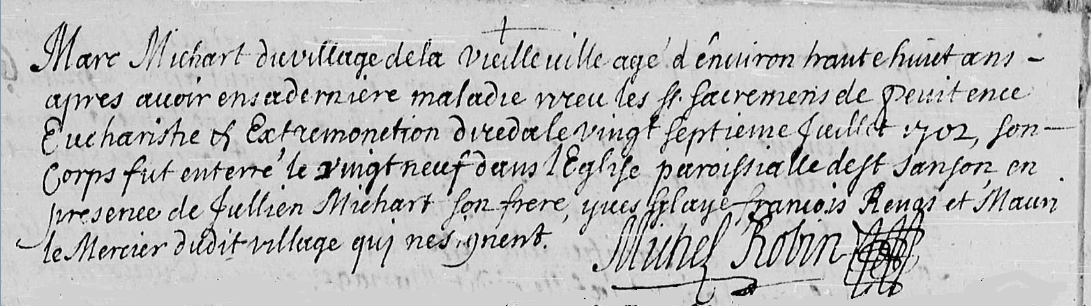 Marc Michart du village de la Vieilleuille agé d'enuiron trante huict ans -
apres auoir en sa derniere maladie receu les st sacremens de Penitence
Eucharistie & Extremonction deceda le vingt septieme Juillet 1702, son
Corps fut enterré le vingt neuf dans l'Eglise paroissialle de st Sanson, en
presence de Jullien Michart son frere, yues françois et
le Mercier dudit village qui ne signent. Michel Robin